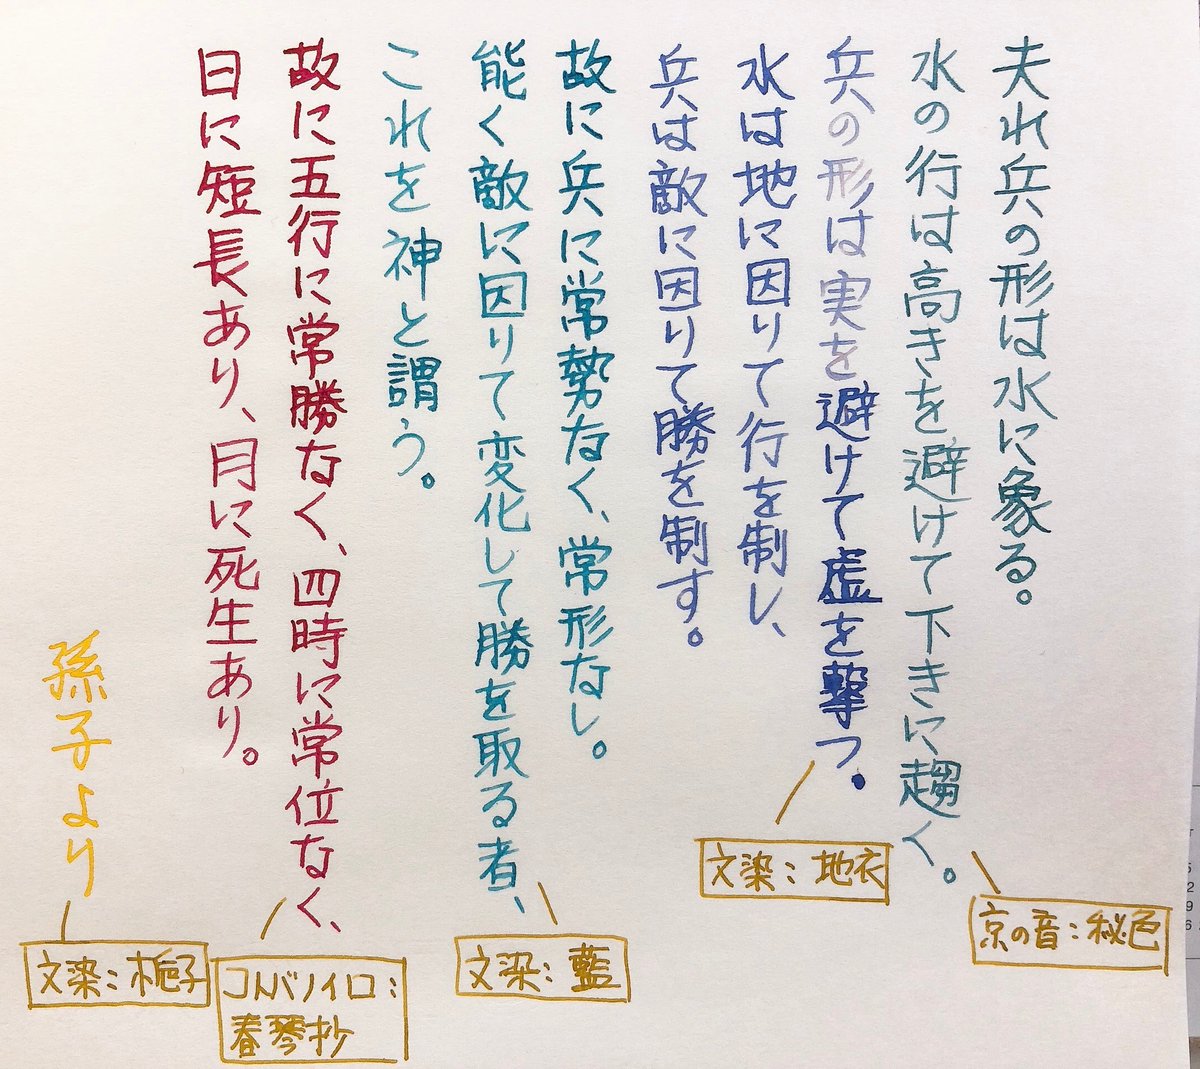 夫れ兵の形は水に象る。
水の行は高きを避けて下きに趨く。
兵の形は実を避けて虚を撃つ。
水は地に因りて行を制し、
兵は敵に因りて勝を制す。
故に兵に常勢なく、常形なし。
能く敵に因りて変化して勝を取る者、
これを神と謂う。
故に五行に常勝なく、四時に常位なく、
日に短長あり、月に死生あり。
孫子より
京の音：秘色
文染：地衣
文染：藍
コトバノイロ：
春琴抄
文染：梔子